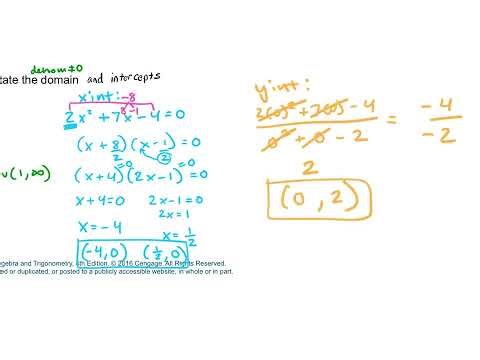 denom≠0
tate the domain and intercepts
x int: -8
2x² + 7x - 4 = 0
8 -1
(x + 8/2)(x - 1/2) = 0
=0 =0
∪ (1, ∞)
(x + 4)(2x - 1) = 0
x + 4 = 0 2x - 1 = 0
2x = 1
x = -4 x = 1/2
(-4, 0) (1/2, 0)
lgebra and Trigonometry, 4th Edition, © 2016 Cengage. All Rights Reserved.
ed or duplicated, or posted to a publicly accessible website, in whole or in part.
y int:
+ - 4 / 0² + 0 - 2 = -4 / -2
2
(0, 2)